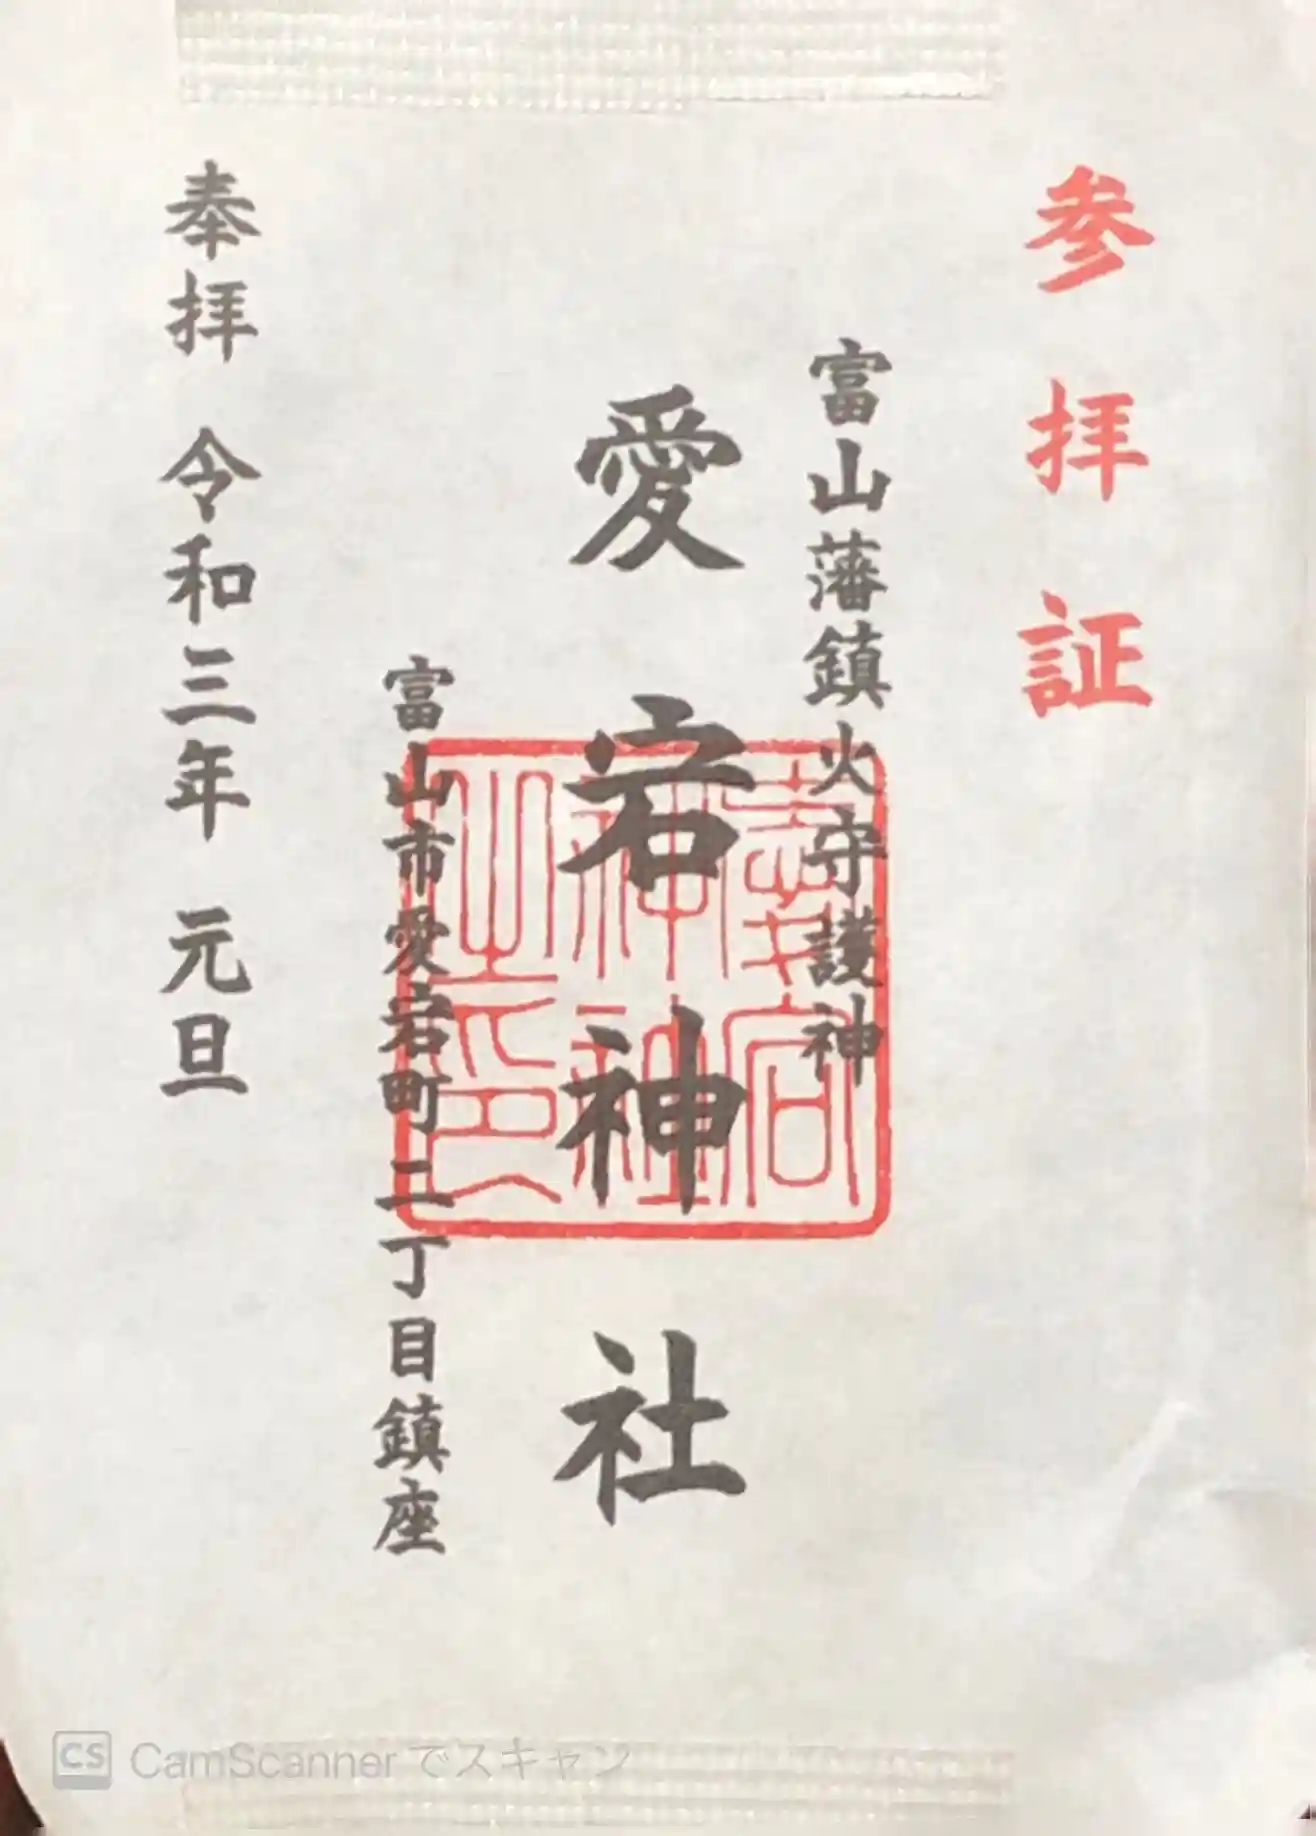 参拝証
富山藩鎮火守護神
愛宕神社
愛宕神社之印
富山市愛宕町二丁目鎮座
奉拝 令和三年 元旦
CS CamScanner でスキャン